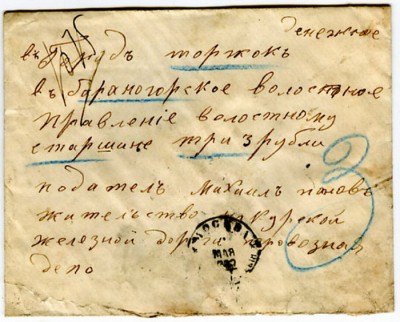 денежное
въ Городъ торжокъ
въ бараногорское волостное
Правленіе волостному
старшине три 3 рубли
3
податель Михаил пановъ
жительство Курской
железной дороги паровозная
депо
МОСКВА
МАР